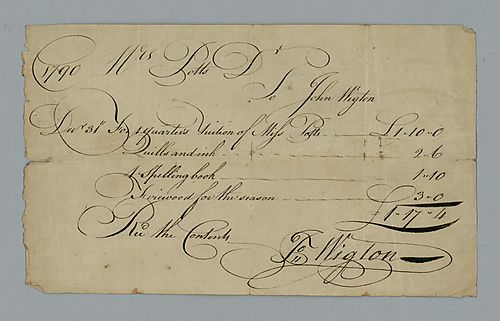 1790 Mrs Potts Dr
To John Wigton
Decr 31st For 1 quarters Tuition of Miss Potts £1"10"0
Quills and ink 2"6
1 Spelling book 1"10
Firewood for the season 3"0
£1"17"4
Recd the Contents
Jno Wigton